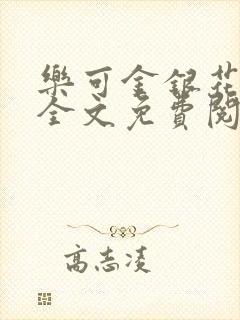 樂可金銀花
全文免費閱
高志凌